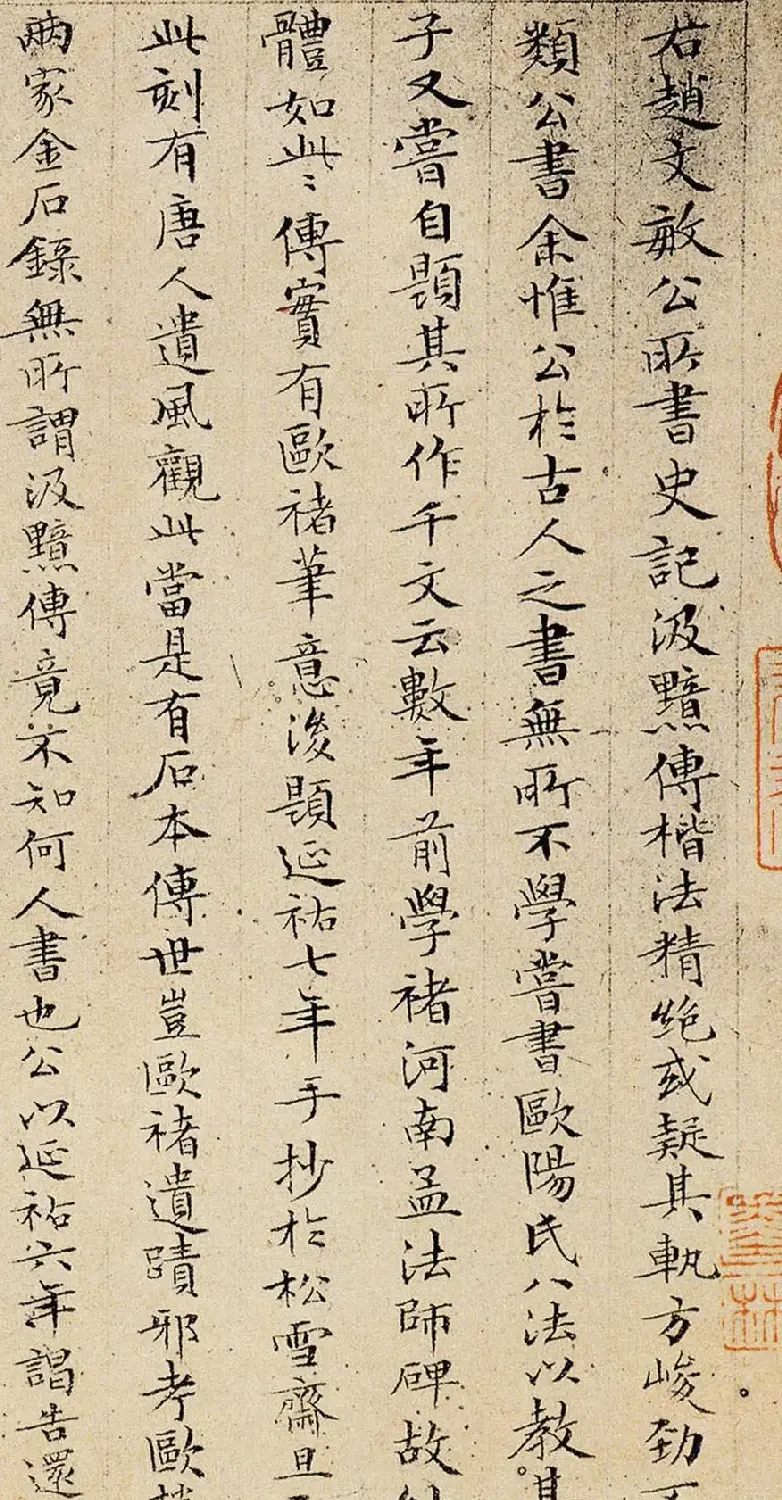 右趙文敏公所書史記汲黯傳楷法精絕或疑其軌方峻勁不
類公書余惟公於古人之書無所不學嘗書歐陽氏八法以教其
子又嘗自題其所作千文云數年前學褚河南孟法師碑故
體如此〻傳實有歐褚筆意後題延祐七年手抄於松雪齋且
此刻有唐人遺風觀此當是有石本傳世豈歐褚遺蹟邪考歐
兩家金石錄無所謂汲黯傳竟不知何人書也公以延祐六年謁告還